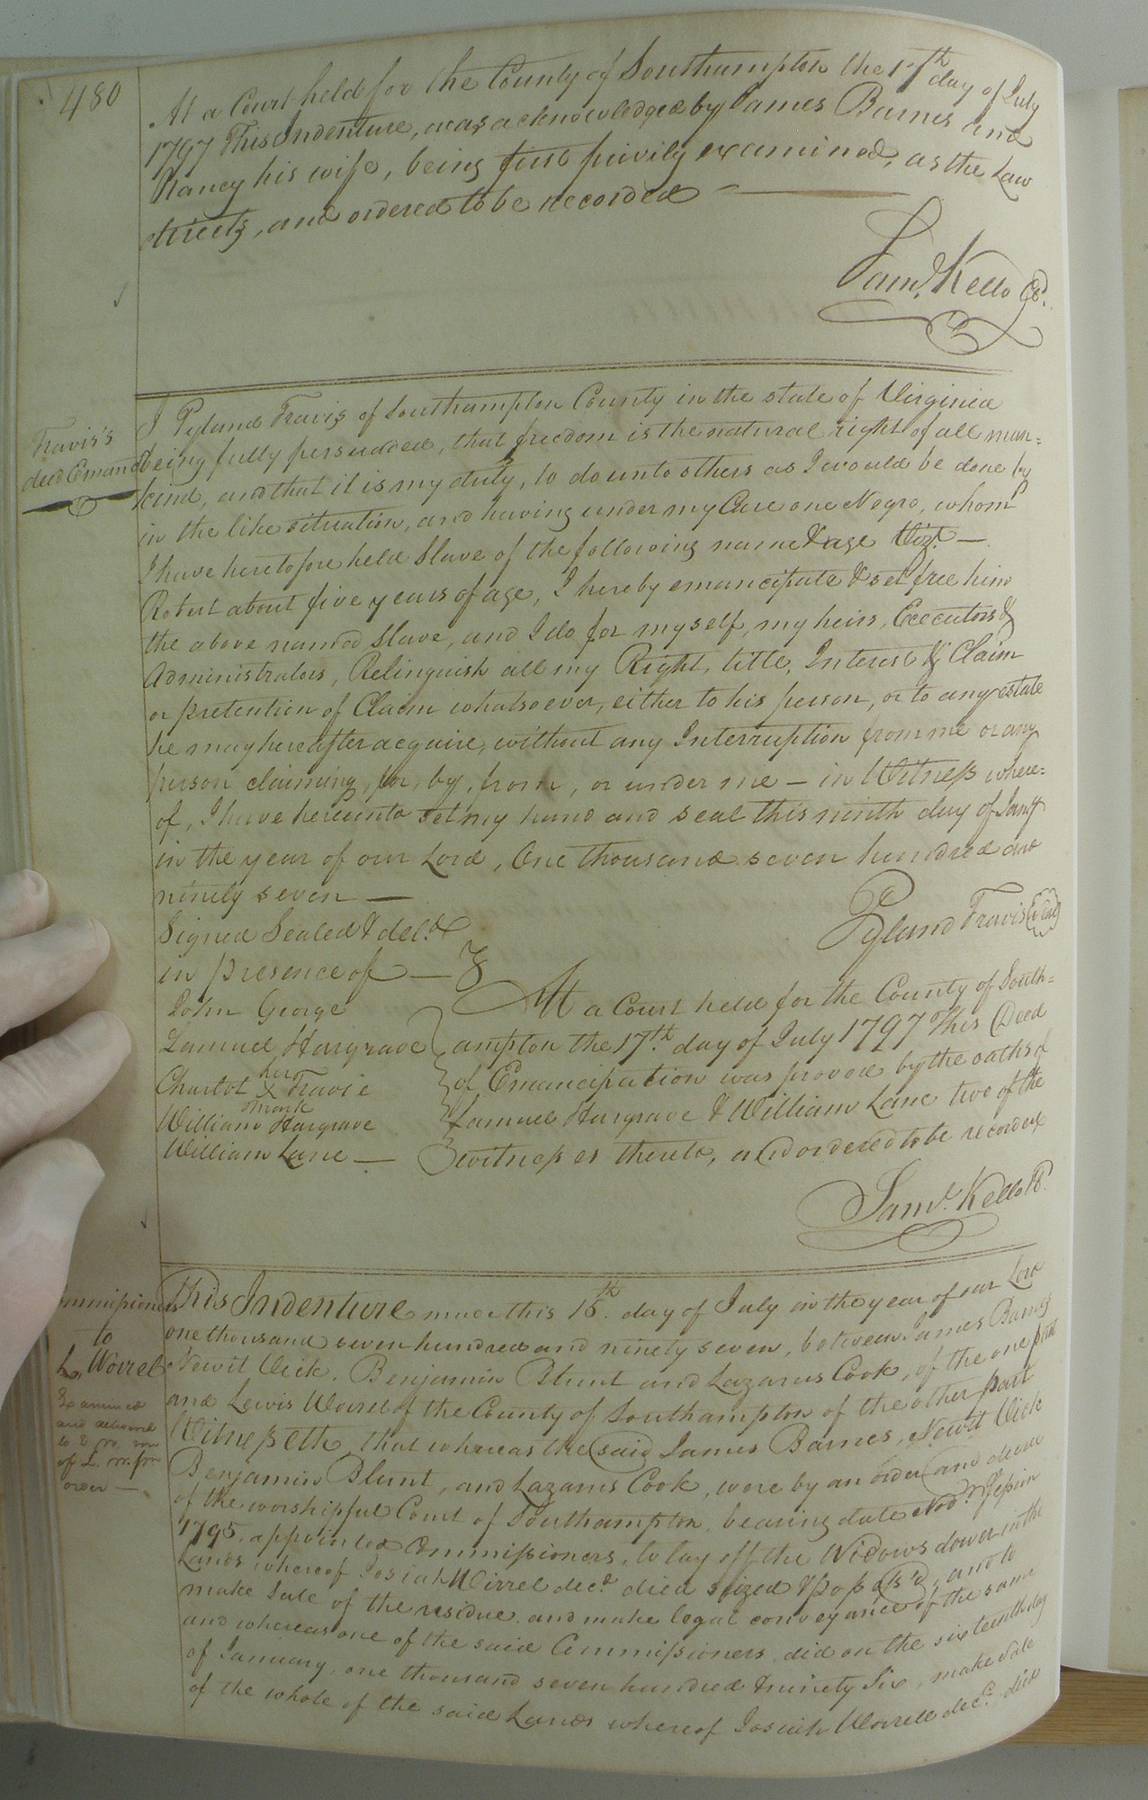 480
At a Court held for the County of Southampton the 17th day of July
1797 This Indenture, was acknowledged by James Barnes and
Nancy his wife, being first privily examined, as the Law
directs, and ordered to be recorded
Saml. Kello Ck.
Travis's
deed Emanc
I Pyland Travis of Southampton County in the state of Virginia
being fully persuaded, that freedom is the natural right of all man=
kind, and that it is my duty, to do unto others as I would be done by
in the like situation, and having under my Care one Negro, whom
I have heretofore held Slave of the following name & age Vizt. —
Robert about five years of age, I hereby emancipate & set free him
the above named Slave, and I do for myself, my heirs, Executors &
Administrators, Relinquish all my Right, title, Interest & Claim
or pretention of Claim whatsoever, either to his person, or to any estate
he may hereafter acquire, without any Interruption from me or any
person claiming, for, by, from, or under me — in Witness where=
of, I have hereunto set my hand and seal this ninth day of Jany
in the year of our Lord, One thousand seven hundred and
ninety seven —
Signed Sealed & deld.
Pyland Travis (seal)
in presence of —
John George
Lamuel Hargrave
Charlot her X mark Travis
William Hargrave
William Lane —
At a Court held for the County of South=
ampton the 17th day of July 1797 This Deed
of Emancipation was proved by the oaths of
Lamuel Hargrave & William Lane two of the
witnesses thereto, and ordered to be recorded
Saml. Kello Ck.
mmissioners
to
L. Worrel
Examined
and delivered
to E. W. son
of L. W. per
order —
This Indenture made this 16th. day of July in the year of our Lord
one thousand seven hundred and ninety seven, between James Barnes
Newit Vick, Benjamin Blunt and Lazarus Cook, of the one part
and Lewis Worrel of the County of Southampton of the other part
Witnesseth, that whereas the said James Barnes, Newit Vick
Benjamin Blunt, and Lazarus Cook, were by an order and decree
of the worshipful Court of Southampton, bearing date Novr. Session
1795, appointed Commissioners, to lay off the Widows dower in the
Lands whereof Josiah Worrel decd. died seized & possess'd, and to
make Sale of the residue and make legal conveyance of the same
and whereas one of the said Commissioners did on the sixteenth day
of January, one thousand seven hundred & ninety Six, make sale
of the whole of the said Lands whereof Josiah Worrell decd. died